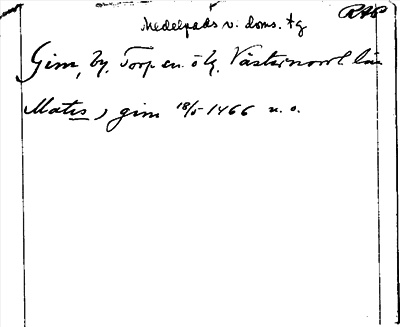 RAP
Medelpads v. doms. tg
Gim, by. Torp sn. ö lg. Västernorrl. län
Matis, gim 18/5 1466 u. o.